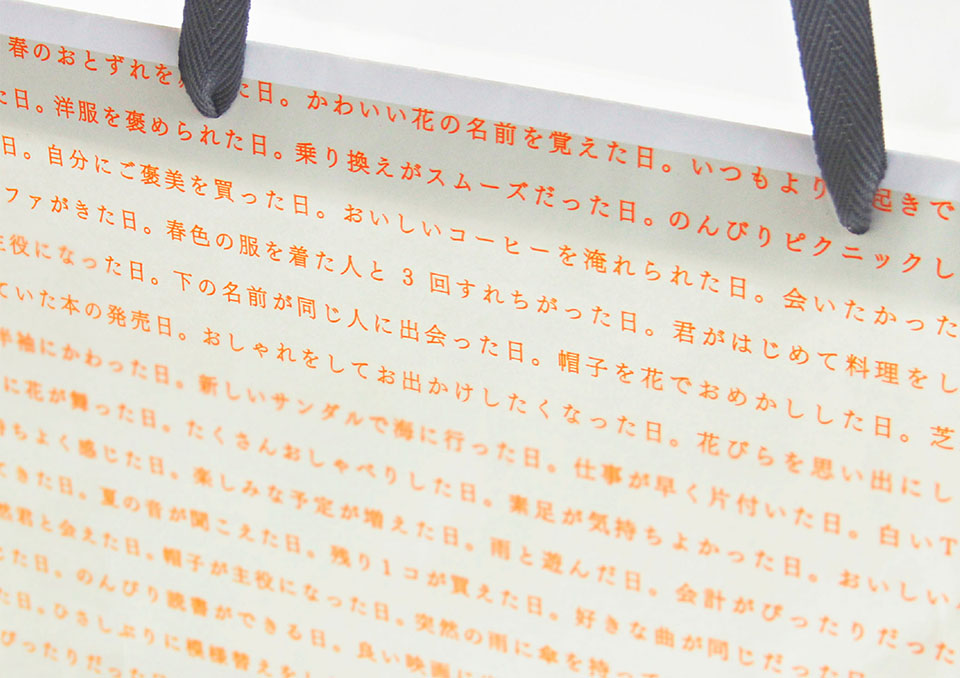 春のおとずれを た日。かわいい花の名前を覚えた日。いつもより 起きで
た日。洋服を褒められた日。乗り換えがスムーズだった日。のんびりピクニックし
日。自分にご褒美を買った日。おいしいコーヒーを淹れられた日。会いたかった
ファがきた日。春色の服を着た人と3回すれちがった日。君がはじめて料理をし
主役になった日。下の名前が同じ人に出会った日。帽子を花でおめかしした日。芝
ていた本の発売日。おしゃれをしてお出かけしたくなった日。花びらを思い出にし
半袖にかわった日。新しいサンダルで海に行った日。仕事が早く片付いた日。白いT
に花が舞った日。たくさんおしゃべりした日。素足が気持ちよかった日。おいしい
持ちよく感じた日。楽しみな予定が増えた日。雨と遊んだ日。会計がぴったりだった
てきた日。夏の音が聞こえた日。残り1コが買えた日。好きな曲が同じだった日
然君と会えた日。帽子が主役になった日。突然の雨に傘を持って
た日。のんびり読書ができる日。良い映画に
た日。ひさしぶりに模様替えを
ぴったりだった